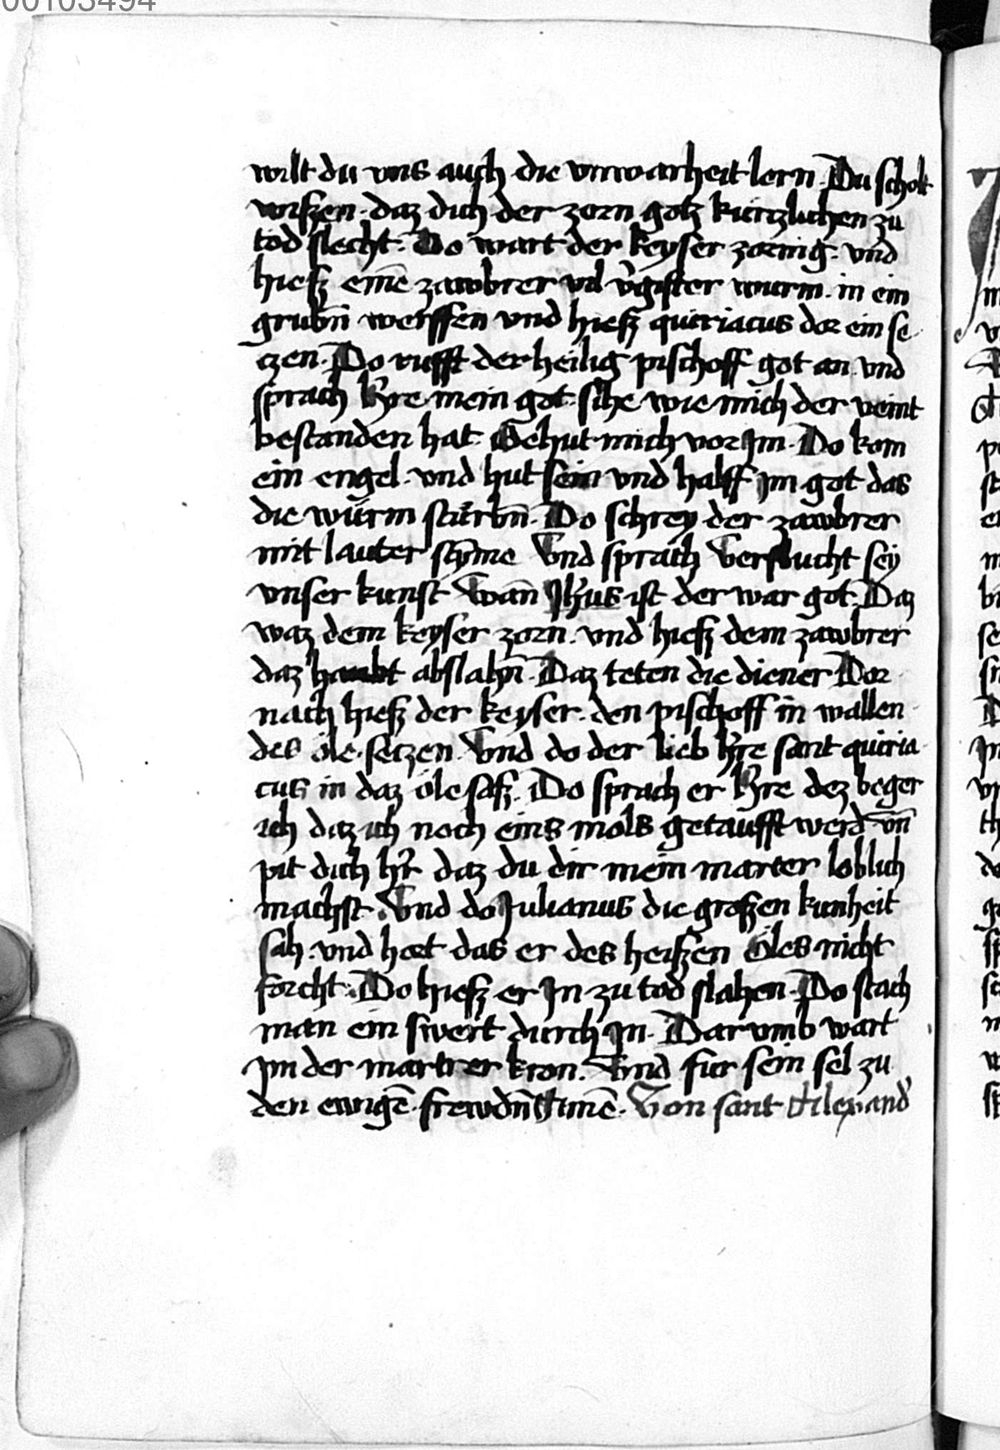 00103494
wilt du vns auch die vnwarheit lern. Du scholt
wissen. daz dich der zorn gotz kurtzlichen zu
tod slecht. Do wart der keyser zornig. vnd
hiesz eine̅ zawbrer vil v̾gifter wurm. in ein
grubn̅ werffen vnd hiesz quiriacus dor ein se
czen. Do rufft der heilig pischoff got an vnd
sprach h̾re mein got. sihe wie mich der veint
bestanden hat. Behut mich vor Jm. Do kom
ein engel. vnd hut sein vnd halff jm got das
die würm stürbn̅. Do schrey der zawbrer
mit lauter sty̅me Vnd sprach Verflucht sey
vnser kunst Wan̅ Jh̾us ist der war got. Daz
waz dem keyser zorn. vnd hiesz dem zawbrer
daz haubt abslahn̅. Daz teten die diener Dor
nach hiesz der keyser. den pischoff in wallen
des öle. setzen. Vnd do der lieb h̾re sant quiria
cus in daz öle sasz. Do sprach er h̾re dez beger
ich daz ich noch eins mols getaufft werd vn̅
pit dich h̾r daz du dir mein marter loblich
machst. Vnd do Julianus die groszen kunheit
sah. vnd hort das er des heiszen öles nicht
forcht. Do hiesz er Jn zu tod slahen. Do stach
man ein swert durch jn. Dar vmb wart
jm der martrer kron. Vnd fur sein sel zu
den ewige̅ frewdn̅ Ame̅. Von sant Alexand̾